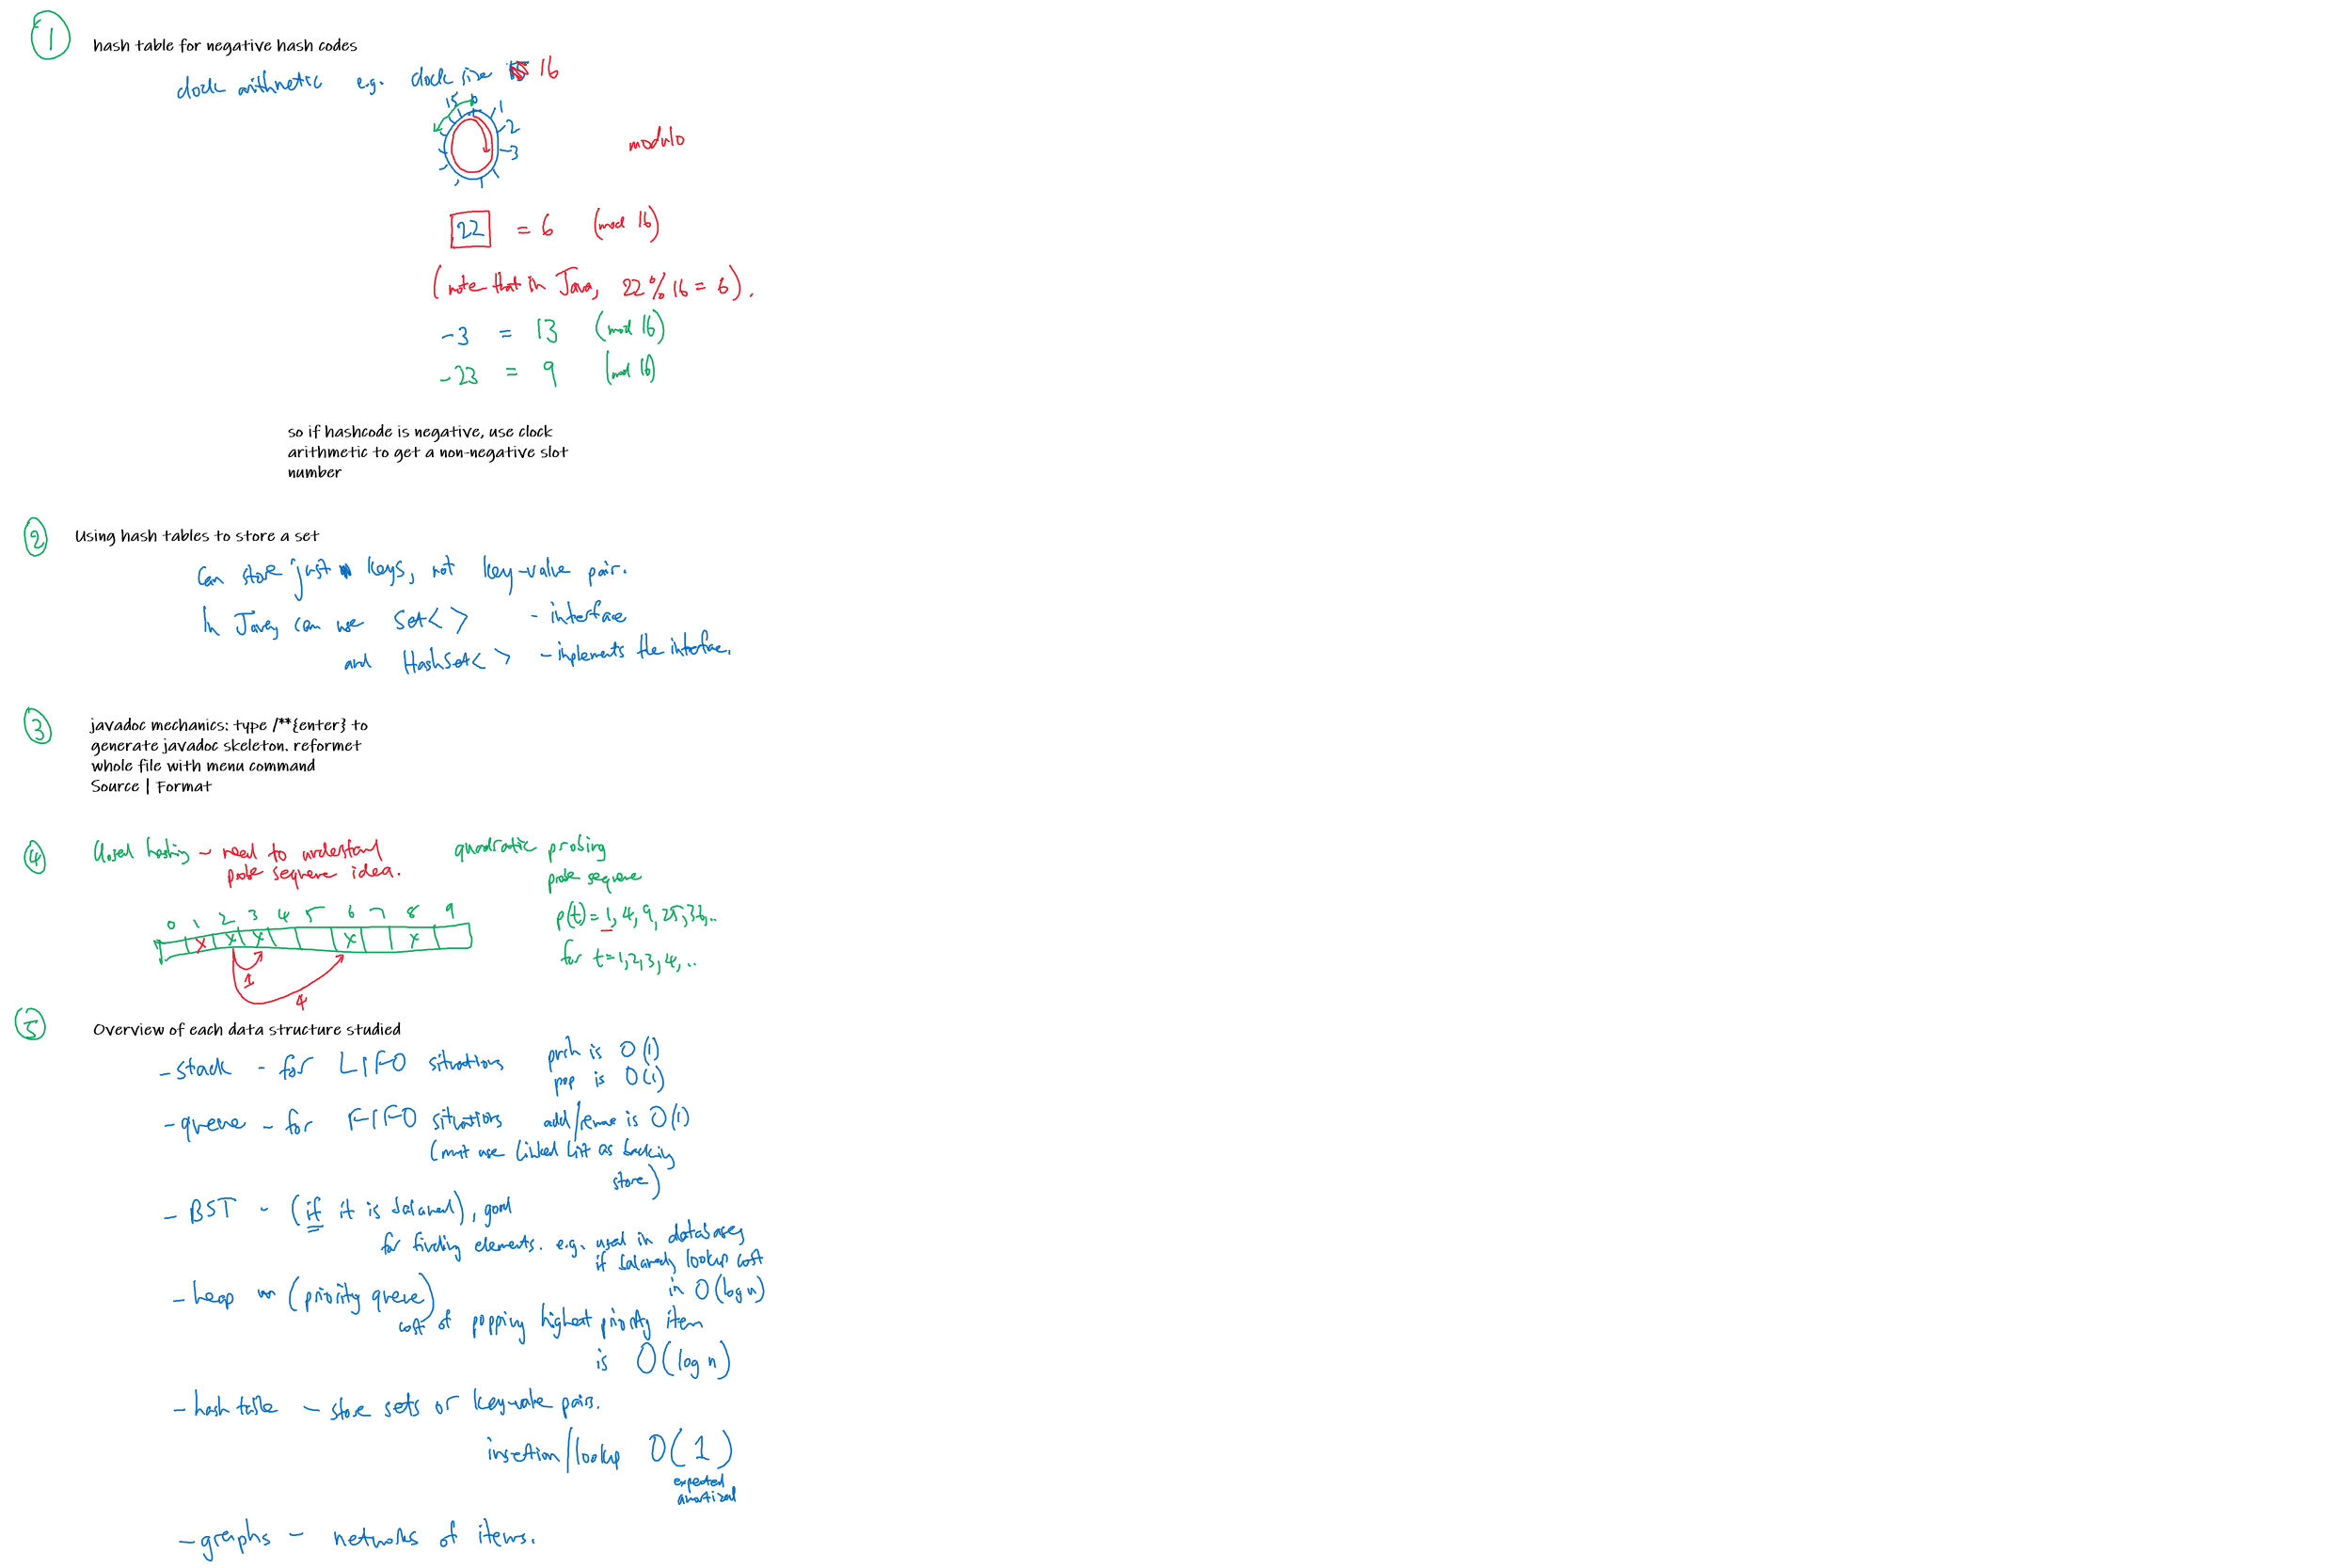 1
hash table for negative hash codes
clock arithmetic e.g. clock size 16
15 0 1
2
3
modulo
22 = 6 (mod 16)
(note that in Java, 22 % 16 = 6).
-3 = 13 (mod 16)
-23 = 9 (mod 16)
so if hashcode is negative, use clock
arithmetic to get a non-negative slot
number
2
Using hash tables to store a set
Can store just keys, not key-value pair.
In Java, can use Set< > - interface
and HashSet< > - implements the interface.
3
javadoc mechanics: type /**{enter} to
generate javadoc skeleton. reformet
whole file with menu command
Source | Format
4
Closed hashing - need to understand
probe sequence idea.
quadratic probing
probe sequence
p(t) = 1, 4, 9, 25, 36, ..
for t = 1, 2, 3, 4, ..
0 1 2 3 4 5 6 7 8 9
x x x x x
1
4
5
Overview of each data structure studied
- stack - for LIFO situations push is O(1)
pop is O(1)
- queue - for FIFO situations add/remove is O(1)
(must use linked list as backing
store)
- BST - (if it is balanced), good
for finding elements. e.g. used in databases
if balanced, lookup cost
in O(log n)
- heap (priority queue)
cost of popping highest priority item
is O(log n)
- hash table - store sets or key-value pairs.
insertion/lookup O(1)
expected
amortized
- graphs - networks of items.